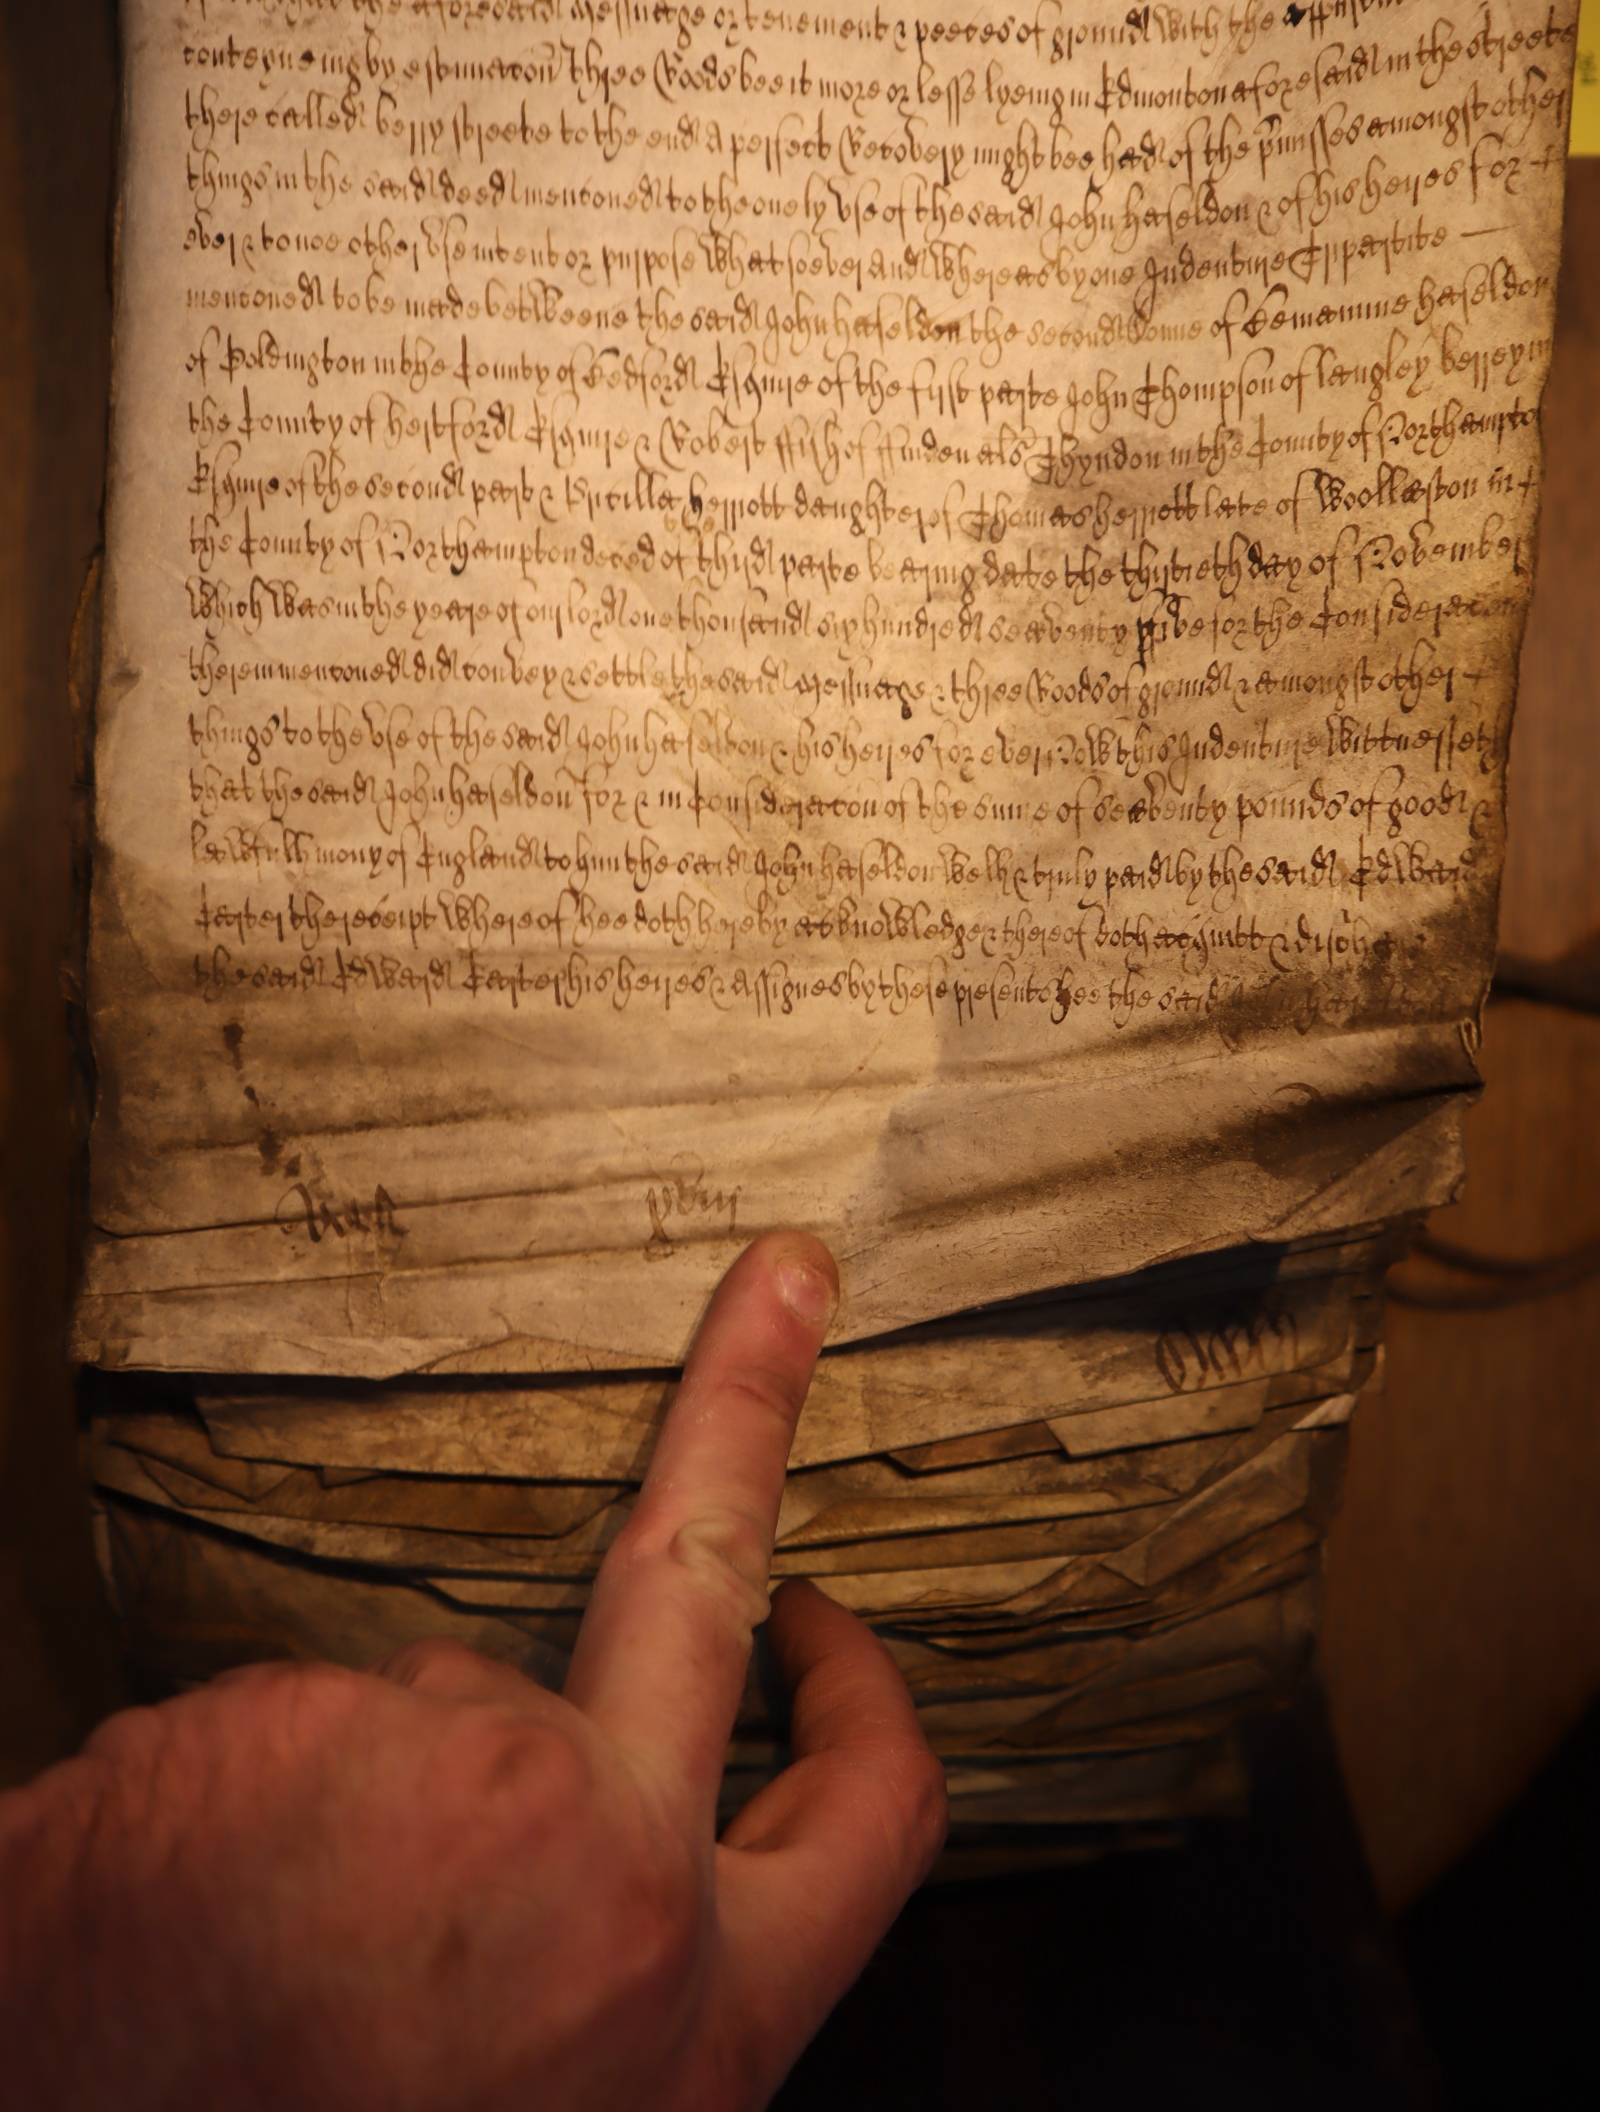 the aforesaid Messuage or tenement & peeces of ground with the
conteyneing by estimacon three Roods bee it more or lesse lyeing in Edmonton aforesaid in the streete
there called berry streete to the end A perfect Recovery might bee had of the p'misses amongst other
things in the said deed menconed to the onely vse of the said John haseldon & of his heires for
ever & to noe other vse intent or purpose whatsoever And Whereas by one Indenture Tripartite
menconed to be made betweene the said John haseldon the second Sonne of haseldon
of Poldington in the County of Bedford Esquire of the first parte John Thompson of langley berrey in
the County of hertford Esquire & Robert ffish of ffinden als Thyndon in the County of Northampto
Esquire of the second part & Pricilla herriott daughter of Thomas herriott late of Woollaston in
the County of Northampton deced of third parte beareing date the thirtieth day of November
Which Was in the yeare of our lord one thousand six hundred seaventy ffive for the Consideracon
therein menconed did convey & settle the said Messuage & three Roods of ground & amongst other
things to the vse of the said John haseldon & his heires for ever Now this Indenture Wittnesseth
that the said John haseldon for & in Consideracon of the sume of seaventy pounds of good &
lawfull mony of England to him the said John haseldon well & truly paid by the said Edward
Carter the receipt Whereof hee doth hereby acknowledge & thereof doth acquitt &
the said Edward Carter his heires & Assignes by these presents hee the said
xviij